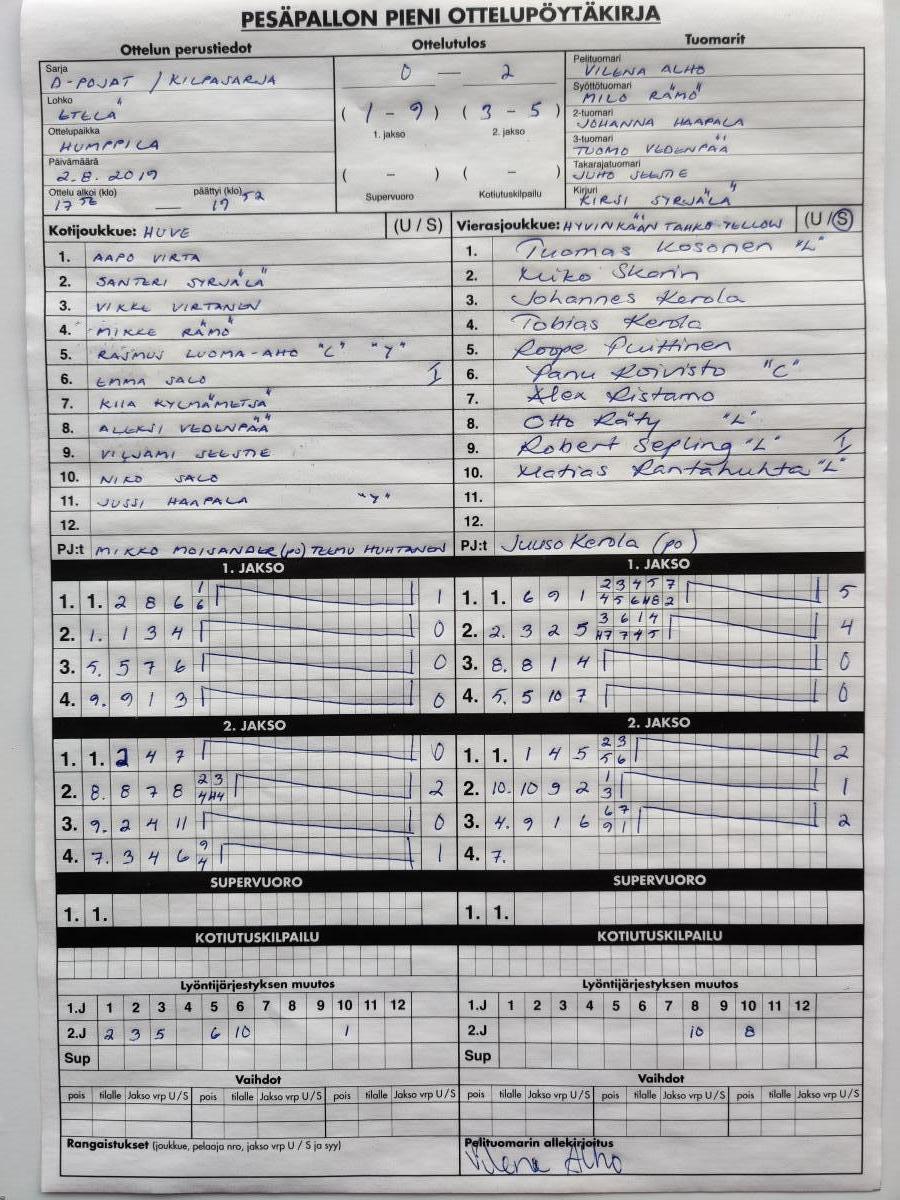 PESÄPALLON PIENI OTTELUPÖYTÄKIRJA
Ottelun perustiedot
Ottelutulos
Tuomarit
Sarja
D-POJAT / KILPASARJA
Lohko
ETELÄ
Ottelupaikka
HUMPPILA
Päivämäärä
2.8.2019
Ottelu alkoi (klo) päättyi (klo)
17 56 — 19 52
0 — 2
( 1 - 9 ) ( 3 - 5 )
1. jakso 2. jakso
( - ) ( - )
Supervuoro Kotiutuskilpailu
Pelituomari
VILENA ALHO
Syöttötuomari
MILO RÄMÖ
2-tuomari
JOHANNA HAAPALA
3-tuomari
TUOMO VEDENPÄÄ
Takarajatuomari
JUHO SEESTIE
Kirjuri
KIRSI SYRJÄLÄ
Kotijoukkue: HUVE (U / S)
1. AAPO VIRTA
2. SANTERI SYRJÄLÄ
3. VIKKE VIRTANEN
4. MIKKE RÄMÖ
5. RASMUS LUOMA-AHO "C" "Y"
6. EMMA SALO I
7. KIIA KYLMÄMETSÄ
8. ALEKSI VEDENPÄÄ
9. VILJAMI SEESTIE
10. NIKO SALO
11. JUSSI HAAPALA "Y"
12.
PJ:t MIKKO MOISANDER (po) TEEMU HUHTANEN
Vierasjoukkue: HYVINKÄÄN TAHKO YELLOW (U / S)
1. Tuomas Kosonen "L"
2. Miko Skarin
3. Johannes Kerola
4. Tobias Kerola
5. Roope Puittinen
6. Panu Roivisto "C"
7. Alex Ristamo
8. Otto Räty "L"
9. Robert Sepling "L" I
10. Matias Rantahuhta "L"
11.
12.
PJ:t Juuso Kerola (po)
1. JAKSO
1. 1. 2 8 6 1 6 1
2. 1. 1 3 4 0
3. 5. 5 7 6 0
4. 9. 9 1 3 0
1. JAKSO
1. 1. 6 9 1 2 3 4 5 7 5
4 5 6 H8 2
2. 2. 3 2 5 3 6 1 4 4
H7 7 4 5
3. 8. 8 1 4 0
4. 5. 5 10 7 0
2. JAKSO
1. 1. 2 4 7 0
2. 8. 8 7 8 2 3 2
4 H4
3. 9. 2 4 11 0
4. 7. 3 4 6 9 4 1
2. JAKSO
1. 1. 1 4 5 2 3 2
5 6
2. 10. 10 9 2 1 3 1
3. 4. 9 1 6 6 7 2
9 1
4. 7.
SUPERVUORO
1. 1.
SUPERVUORO
1. 1.
KOTIUTUSKILPAILU
KOTIUTUSKILPAILU
Lyöntijärjestyksen muutos
1.J 1 2 3 4 5 6 7 8 9 10 11 12
2.J 2 3 5 6 10 1
Sup
Lyöntijärjestyksen muutos
1.J 1 2 3 4 5 6 7 8 9 10 11 12
2.J 10 8
Sup
Vaihdot
pois tilalle Jakso vrp U/S pois tilalle Jakso vrp U/S pois tilalle Jakso vrp U/S
Vaihdot
pois tilalle Jakso vrp U/S pois tilalle Jakso vrp U/S pois tilalle Jakso vrp U/S
Rangaistukset (joukkue, pelaaja nro, jakso vrp U / S ja syy)
Pelituomarin allekirjoitus
Vilena Alho